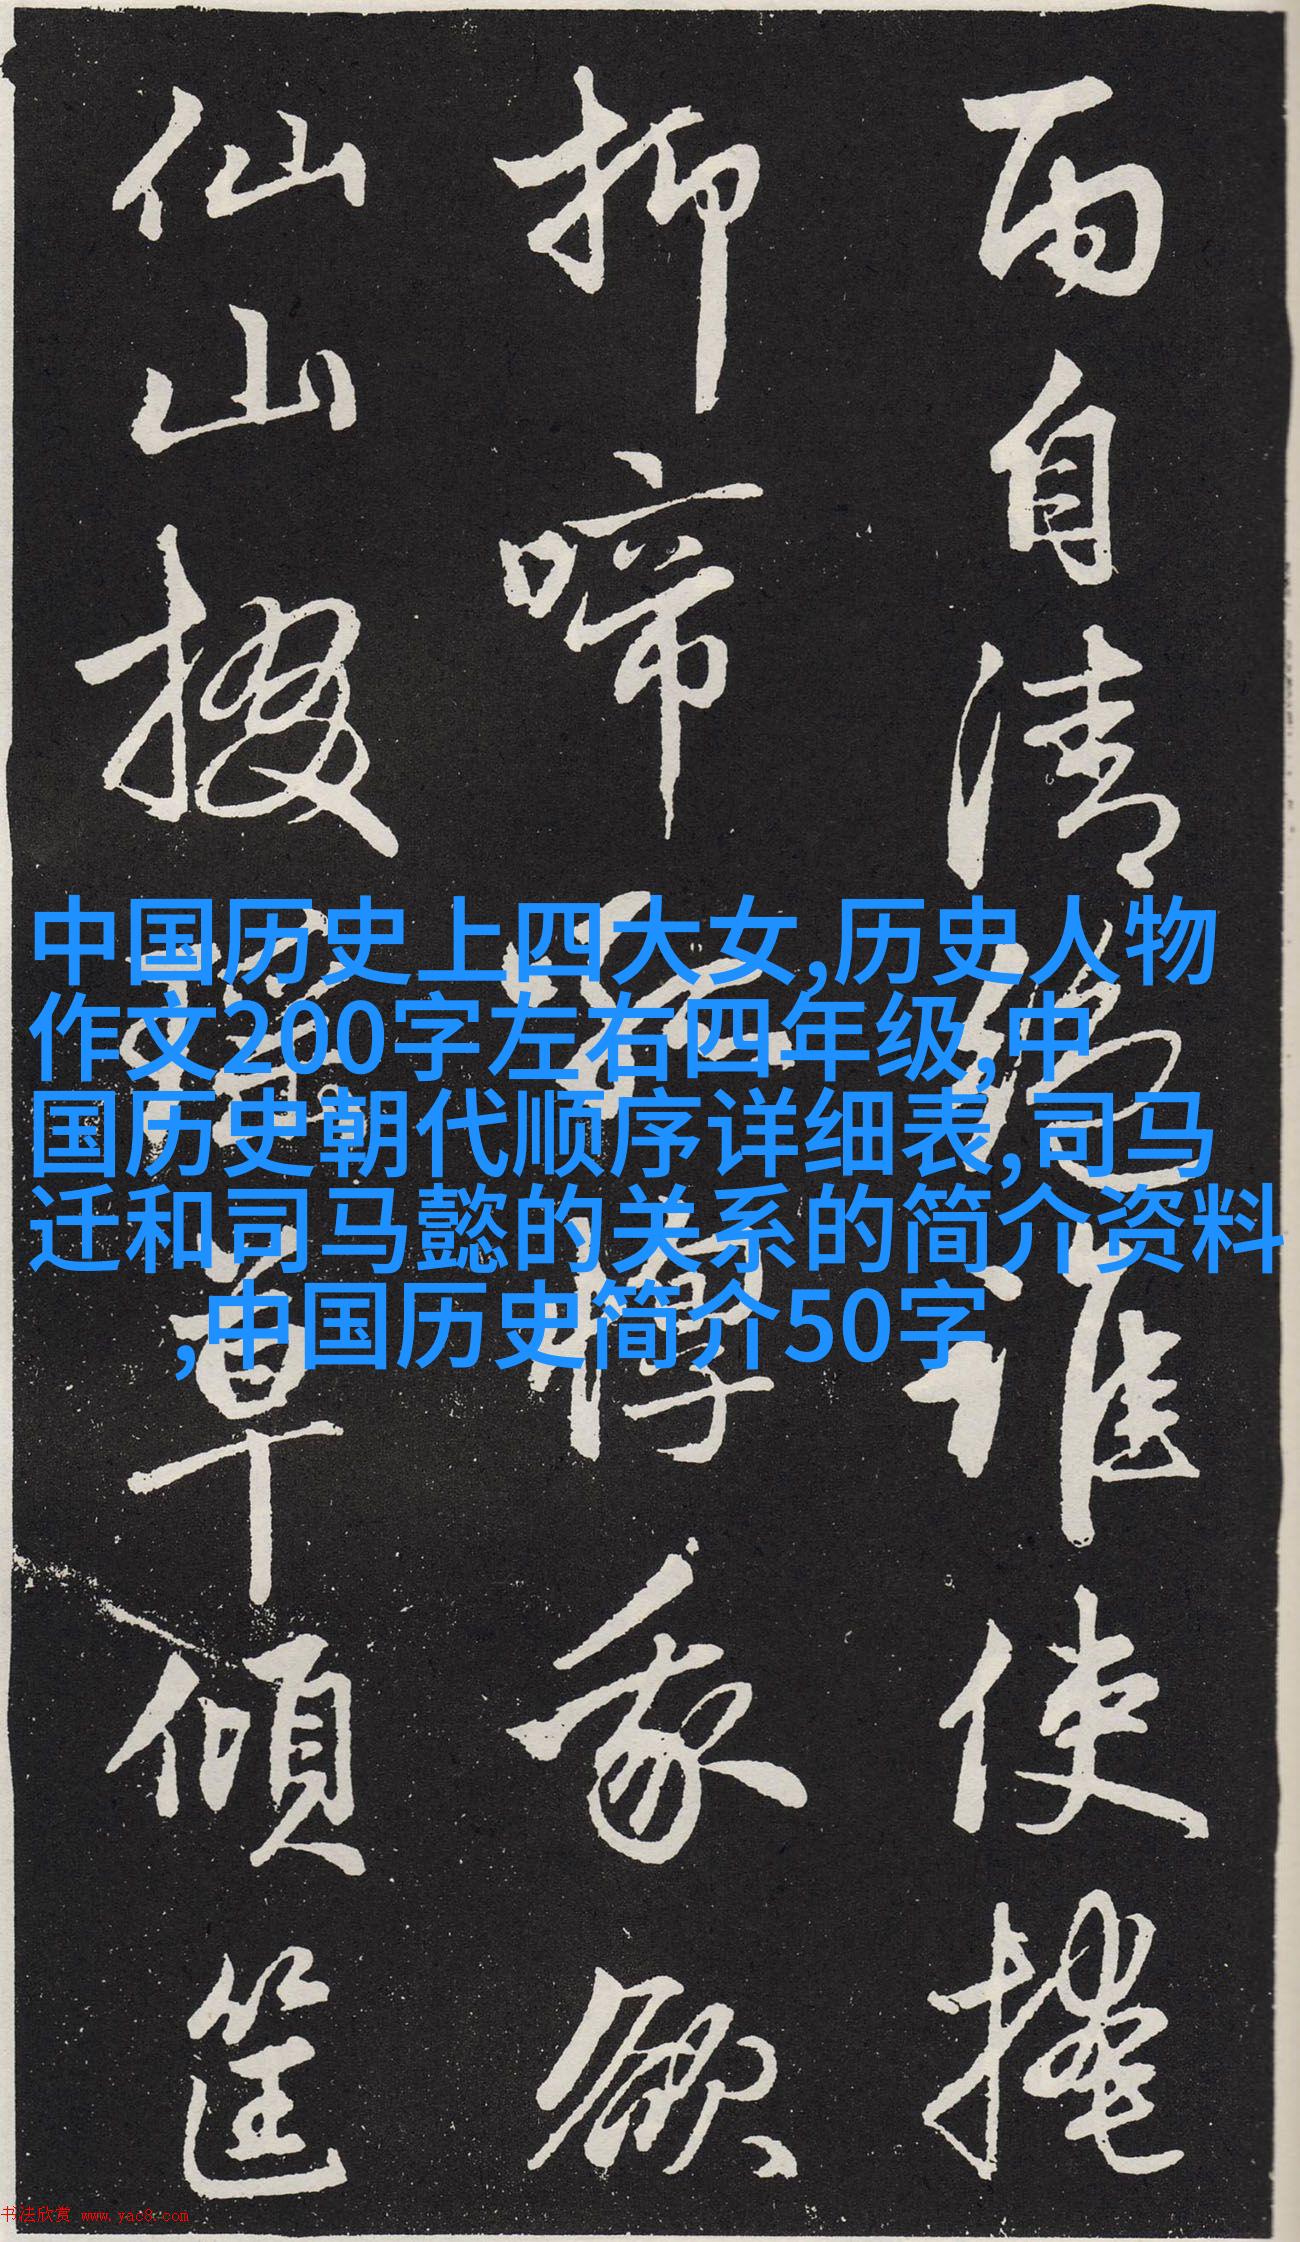 雨自清𬒳谁使掩
抑啼
家欲
仙山掇
草倾筐
中国历史上四大女,历史人物
作文200字左右四年级,中
国历史朝代顺序详细表,司马
迁和司马懿的关系的简介资料
,中国历史简介50字
书法欣赏 www.yac8.com